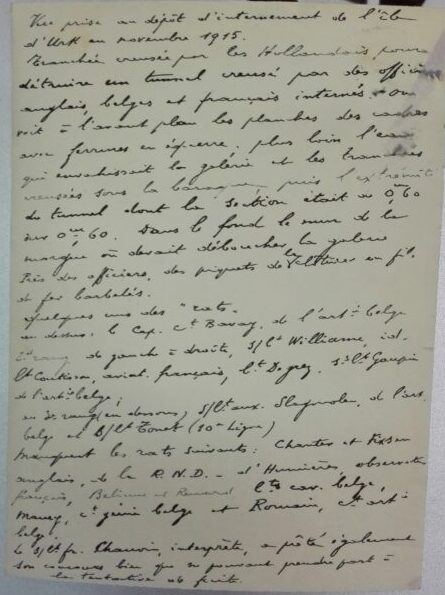 Vue prise au dépôt d'internement de l'île
d'Urk en novembre 1915.
Tranchée creusée par les Hollandais pour
détruire un tunnel creusé par des officiers
anglais, belges et français internés. On
voit à l'avant plan les planches des cadres
avec ferrures en équerre, plus loin l'eau
qui envahissait la galerie et les tranchées
creusées sous la baraque, puis l'extrémité
du tunnel dont la section était de 0m60
sur 0m60. Dans le fond le mur de la
où devait déboucher la galerie
Près des officiers, des piquets de la clôture en fil
de fer barbelés.
Quelques uns des "rats"
au dessus: le Cap. Ct Bavay, de l'artie belge
2e rang de gauche à droite, S/Lt Williame, id.
Lt aviat. français, Lt Degrez, S/Lt
de l'artie belge;
au 3e rang (en dessous) S/Lt aux. de l'art.
belge et S/Lt (10e Ligne)
Manquent les rats suivants: Chanter et
anglais, de la R.N.D. - d'Humières, observateur
français, et Renard Lts cav. belge,
ct génie belge et Romain, ct art-
belge.
Le S/Lt fr. Chauvin, interprète, a prêté également
son concours bien que ne pouvant prendre part à
la tentative de fuite.